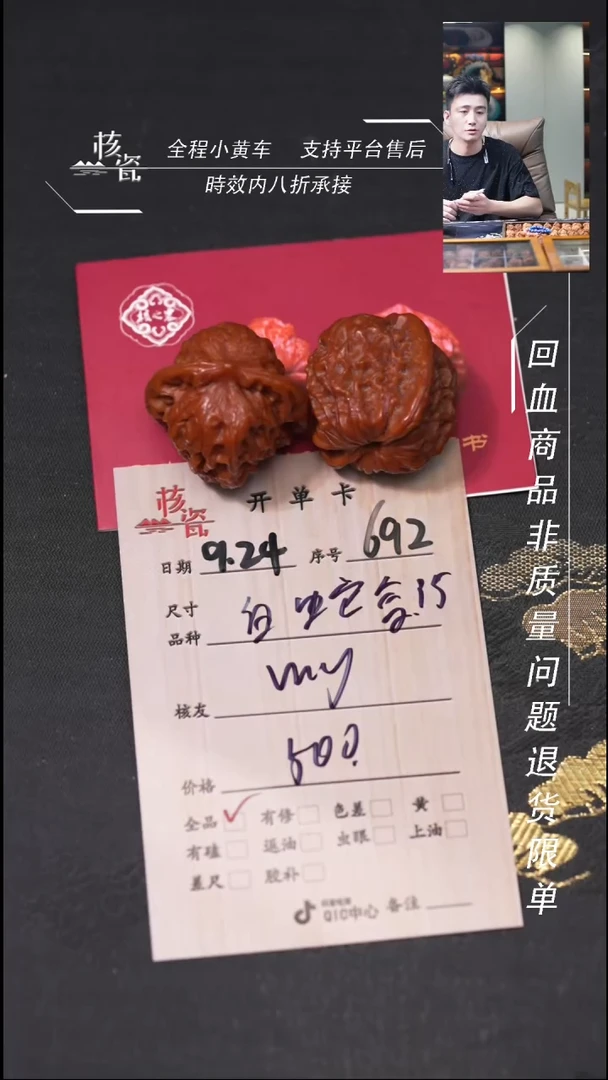 核瓷
全程小黄车 支持平台售后
時效内八折承接
回血商品非质量问题退货限单
书
核瓷
开单卡
日期 9.24 序号 692
尺寸
品种
my
核友
价格
全品 有修 色差 黄
有磕 返油 虫眼 上油
差尺 胶补
QIC中心 备注